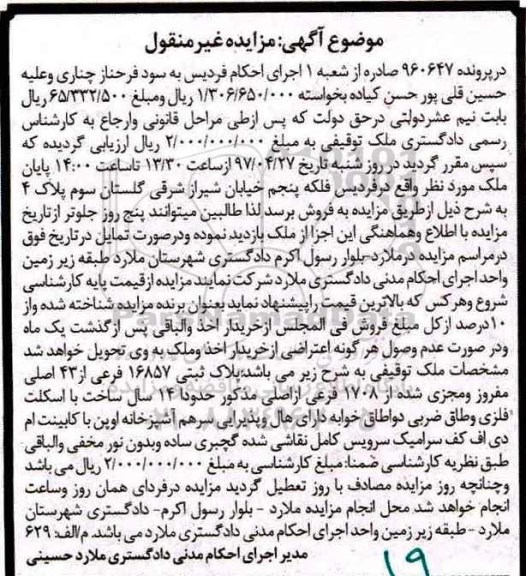 موضوع آگهی: مزایده غیر منقول
در پرونده ۹۶۰۶۴۷ صادره از شعبه ۱ اجرای احکام فردیس به سود فرحناز چناری و علیه
حسین قلی پور حسن کیاده بخواسته ۱/۳۰۶/۶۵۰/۰۰۰ ریال ومبلغ ۶۵/۳۳۲/۵۰۰ ریال
بابت نیم عشردولتی درحق دولت که پس ازطی مراحل قانونی وارجاع به کارشناس
رسمی دادگستری ملک توقیفی به مبلغ ۲/۰۰۰/۰۰۰/۰۰۰ ریال ارزیابی گردیده که
سپس مقرر گردید در روز شنبه تاریخ ۹۷/۰۴/۲۷ ازساعت ۱۳/۳۰ تاساعت ۱۴:۰۰ پایان
ملک مورد نظر واقع درفردیس فلکه پنجم خیابان شیراز شرقی گلستان سوم پلاک ۴
به شرح ذیل ازطریق مزایده به فروش برسد لذا طالبین میتوانند پنج روز جلوتر ازتاریخ
مزایده با اطلاع وهماهنگی این اجرا از ملک بازدید نموده ودرصورت تمایل درتاریخ فوق
درمراسم مزایده درملارد-بلوار رسول اکرم دادگستری شهرستان ملارد طبقه زیر زمین
واحد اجرای احکام مدنی دادگستری ملارد شرکت نمایند مزایده ازقیمت پایه کارشناسی
شروع وهرکس که بالاترین قیمت را پیشنهاد نماید بعنوان برنده مزایده شناخته شده واز
۱۰درصد ازکل مبلغ فروش فی المجلس ازخریدار اخذ والباقی پس ازگذشت یک ماه
ودر صورت عدم وصول هر گونه اعتراضی ازخریدار اخذ وملک به وی تحویل خواهد شد
مشخصات ملک توقیفی به شرح زیر می باشد:پلاک ثبتی ۱۶۸۵۷ فرعی از۴۳ اصلی
مفروز ومجزی شده از ۱۷۰۸ فرعی ازاصلی مذکور حدودا ۱۴ سال ساخت با اسکلت
فلزی وطاق ضربی دواطاق خوابه دارای هال وپذیرایی سرهم آشپزخانه اوپن با کابینت ام
دی اف کف سرامیک سرویس کامل نقاشی شده گچبری ساده وبدون نور مخفی والباقی
طبق نظریه کارشناسی ضمنا: مبلغ کارشناسی به مبلغ ۲/۰۰۰/۰۰۰/۰۰۰ ریال می باشد
وچنانچه روز مزایده مصادف با روز تعطیل گردید مزایده درفردای همان روز وساعت
انجام خواهد شد. محل انجام مزایده ملارد - بلوار رسول اکرم- دادگستری شهرستان
ملارد - طبقه زیر زمین واحد اجرای احکام مدنی دادگستری ملارد می باشد. م/الف: ۶۲۹
مدیر اجرای احکام مدنی دادگستری ملارد حسینی
۱۹